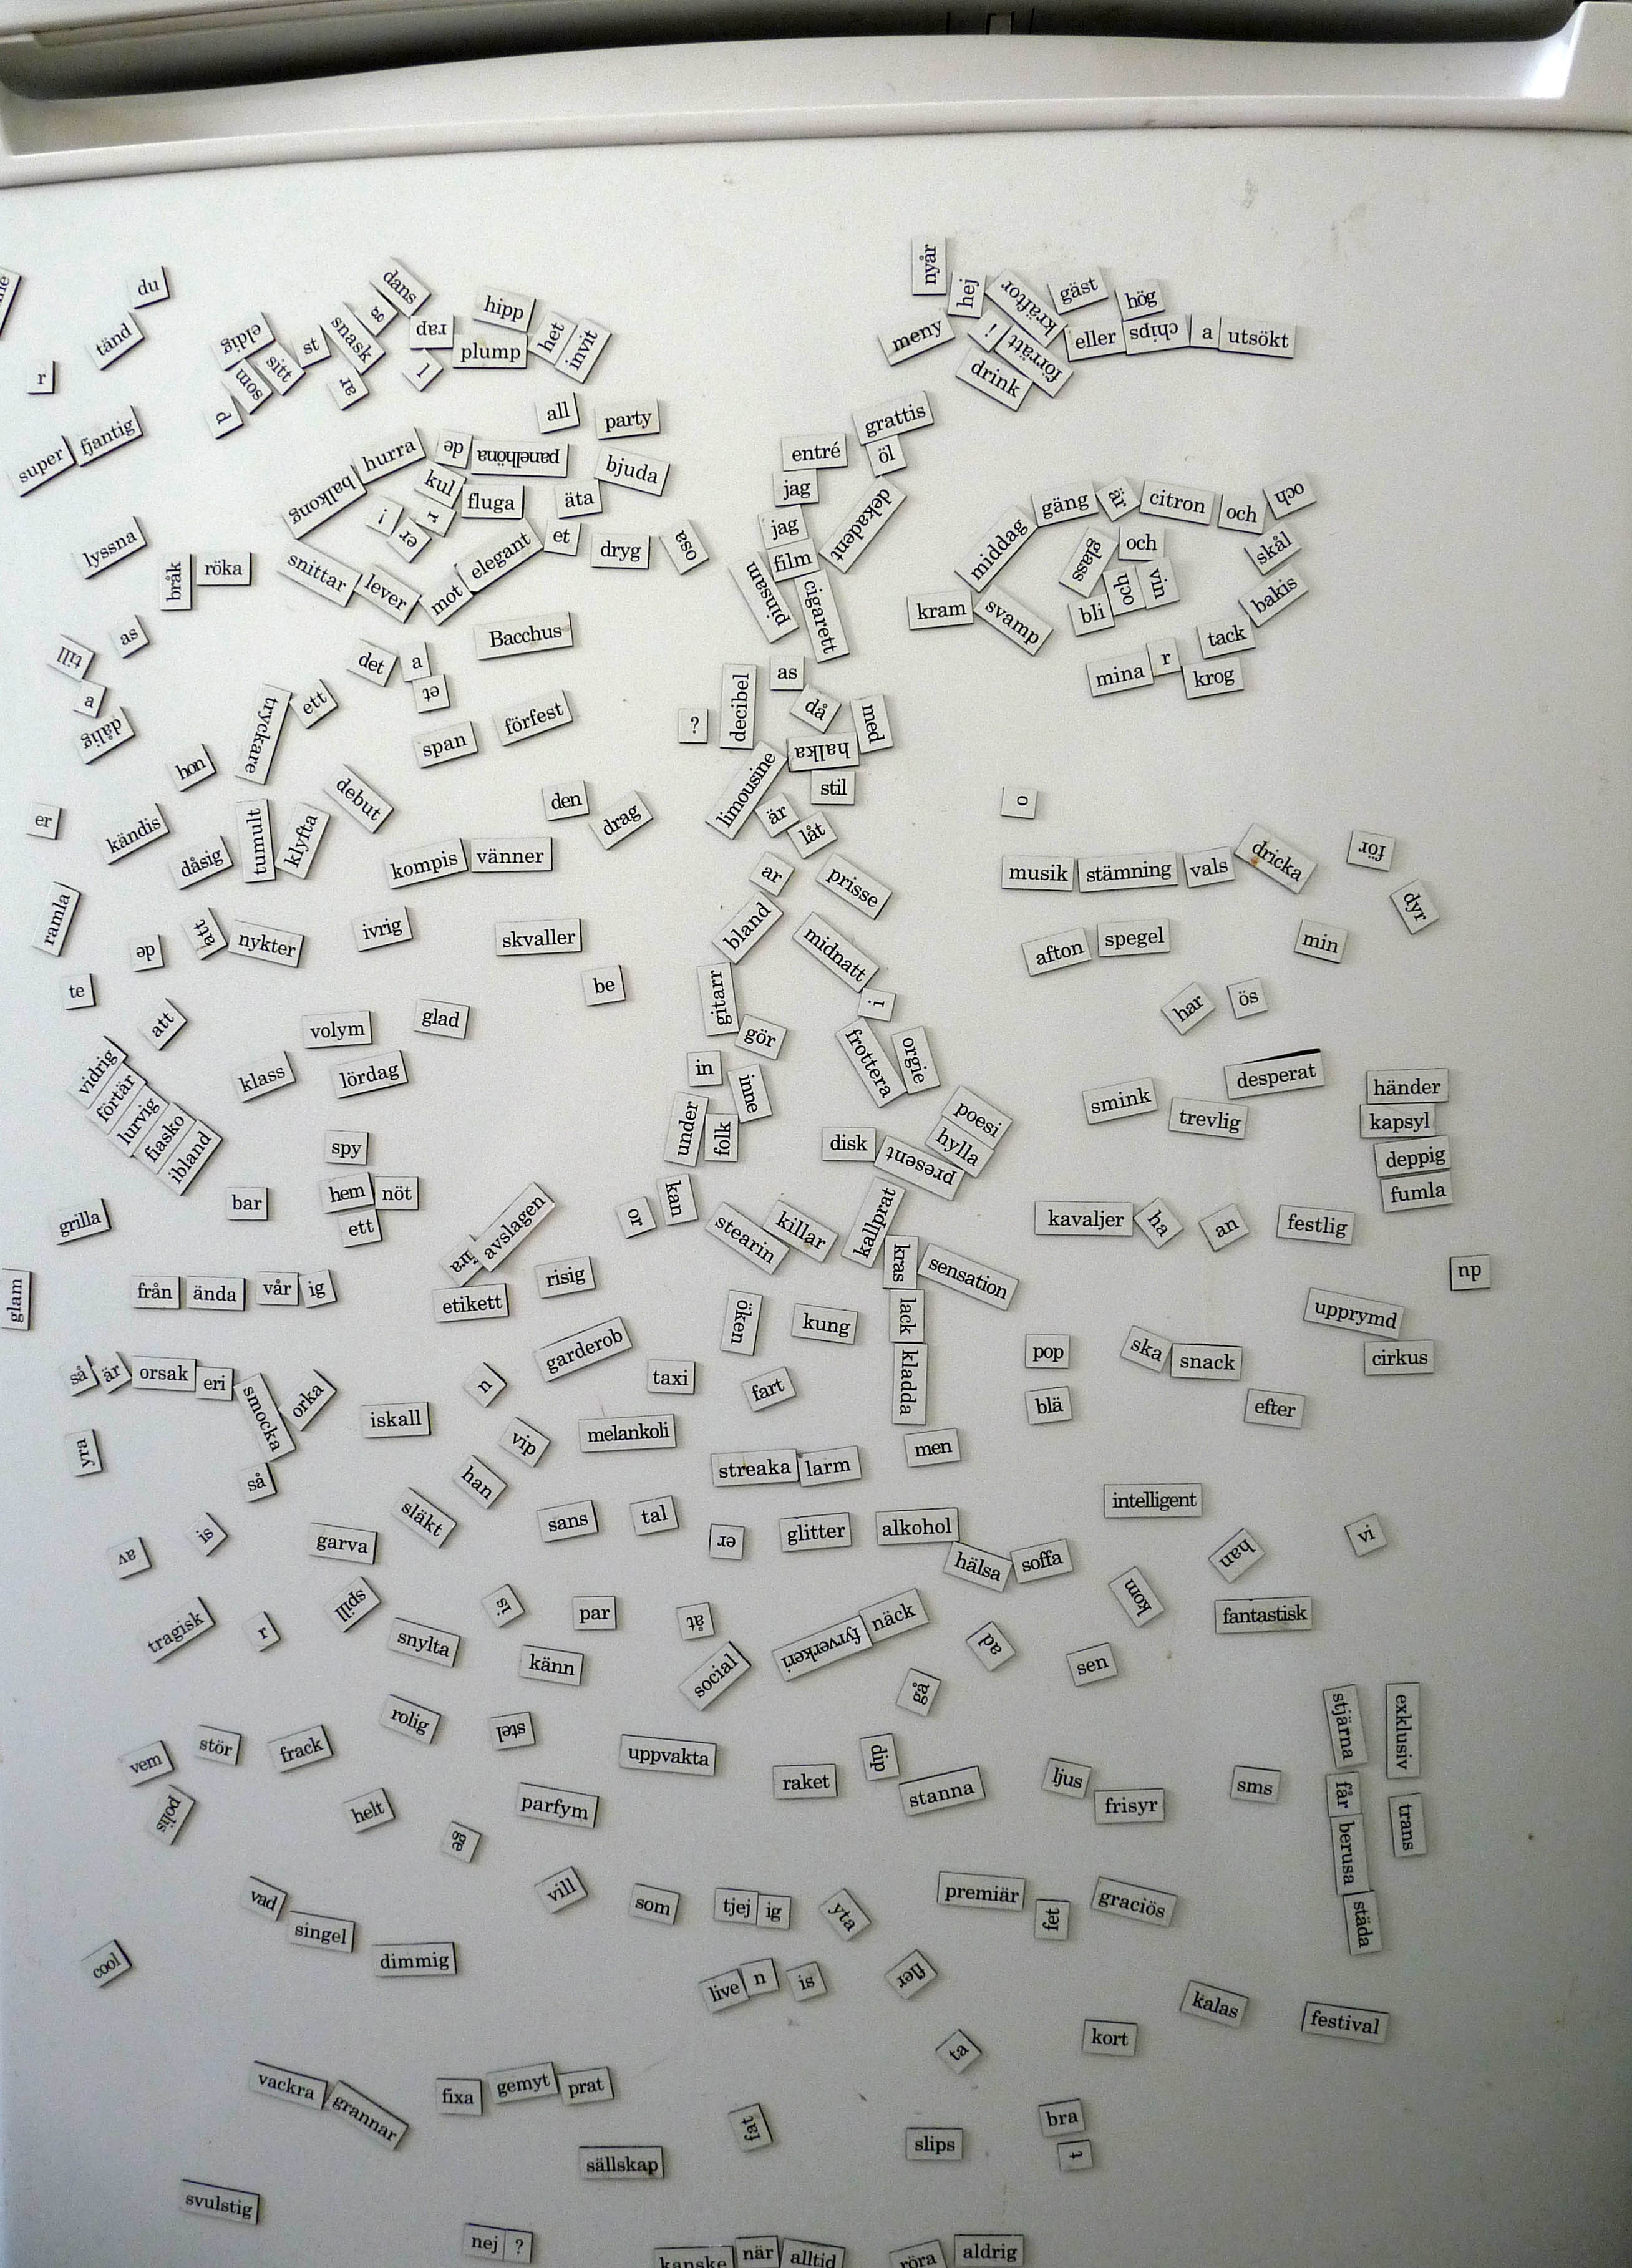 nyår
du
dans
hipp
hej
kräftor
gäst
hög
tänd
eldig
st
snask
g
rap
plump
het
invit
meny
i
förrätt
eller chips a utsökt
r
d
som
sitt
ar
l
drink
super fjantig
all
party
grattis
entré
öl
balkong hurra
de
panelhöna
bjuda
jag
kul
fluga
äta
dekadent
middag gäng är citron och och
!
er
r
jag
lyssna
bråk röka
snittar lever mot elegant et
dryg
osa
film
pinsam
cigarett
glass
och
skål
kram svamp
bli och vin
bakis
as
till
Bacchus
tack
det a
et
as
mina r krog
a
dålig
tryckare
ett
span
förfest
?
decibel
då
med
halka
hon
debut
limousine
stil
er
kändis
dåsig
tumult
klyfta
den
drag
är
låt
o
kompis vänner
ar
prisse
musik stämning vals dricka
för
ramla
de
att nykter
ivrig
skvaller
bland
midnatt
afton spegel
min
dyr
te
be
gitarr
i
har
ös
att
volym
glad
gör
vidrig
förtär
lurvig
fiasko
ibland
klass
lördag
in
inne
frottera
orgie
smink
trevlig
desperat
händer
kapsyl
deppig
fumla
spy
under
folk
disk
present
poesi
hylla
grilla
bar
hem nöt
ett
avslagen
or
kan
stearin
killar
kallprat
kavaljer ha
an
festlig
glam
från ända vår ig
etikett
risig
kras
sensation
np
öken
kung
lack
upprymd
så är orsak eri
smocka
orka
n
garderob
taxi
fart
kladda
pop
ska snack
cirkus
yra
iskall
vip
melankoli
blä
efter
så
han
streaka larm
men
av
is
garva
släkt
sans
tal
er
glitter
alkohol
intelligent
vi
hälsa soffa
han
tragisk
r
spill
snylta
si
par
åt
fyrverkeri näck
ad
kom
fantastisk
känn
social
gå
sen
vem
stör
frack
rolig
stel
uppvakta
raket
dip
stanna
ljus
frisyr
sms
stjärna
exklusiv
polis
helt
ge
parfym
får
berusa
städa
trans
vad
singel
vill
som
tjej ig
yta
premiär
fet
graciös
cool
dimmig
live n
is
fler
kalas
festival
ta
kort
vackra grannar
fixa
gemyt prat
fat
slips
bra
t
sällskap
svulstig
nej ?
kanske när alltid
röra
aldrig